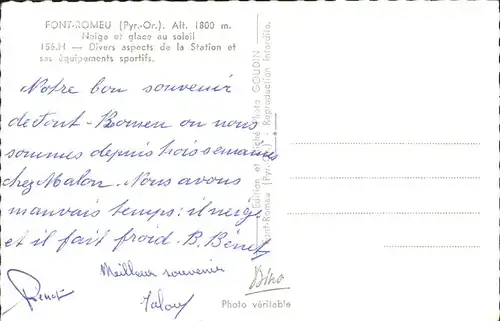 FONT-ROMEU (Pyr.-Or.). Alt. 1800 m.
Neige et glace au soleil
156.H — Divers aspects de la Station et
ses équipements sportifs.
Notre bon souvenir
de Font-Romeu ou nous
sommes depuis trois semaines
chez Malon. Nous avons
mauvais temps : il neige
et il fait froid. B. Bénet
Meilleur souvenir
Bénet
Photo véritable
Edition et Cliché Photo GOUDIN
Font-Romeu (Pyr.-Or.) - Reproduction Interdite.